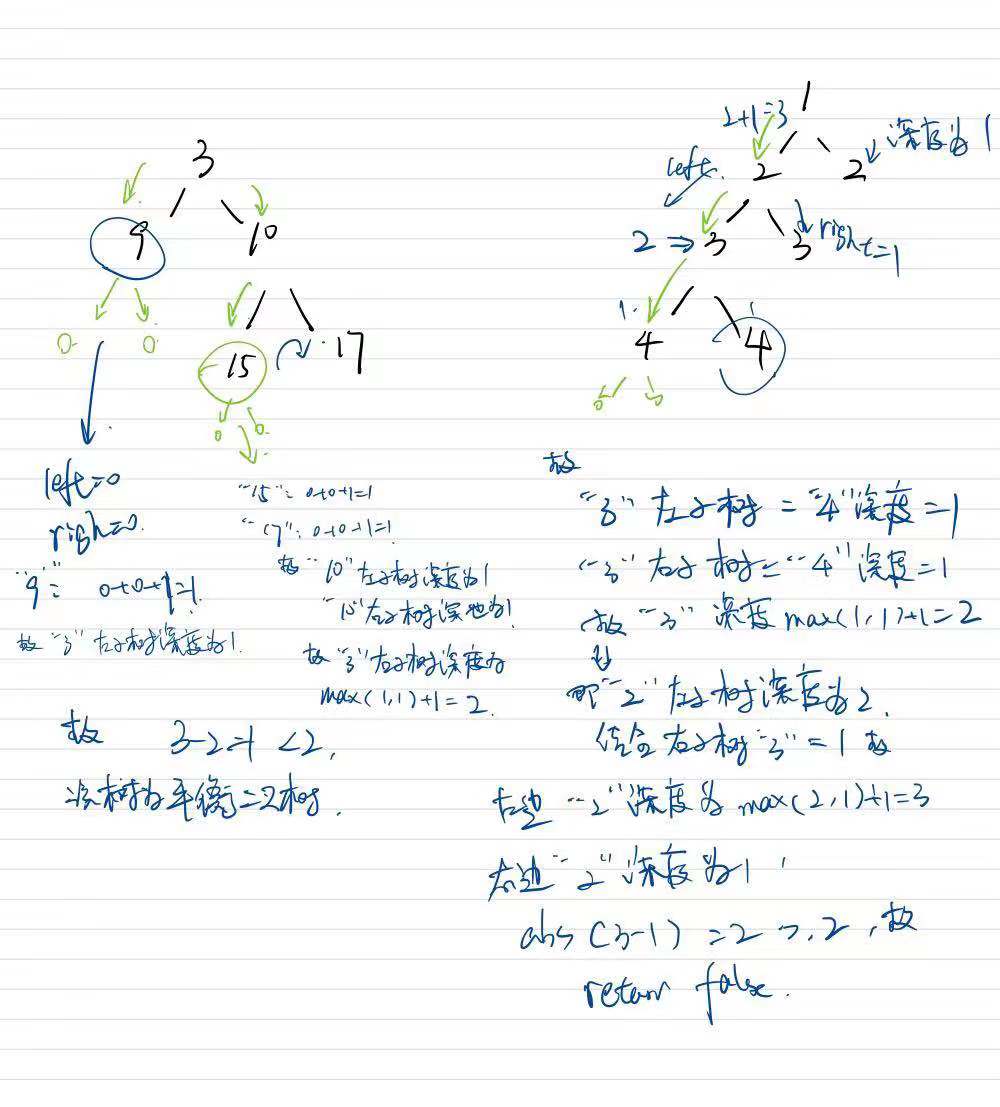 3
9
10
0
0
15
17
0
0
left=0
right=0
"9": 0+0+1=1
故"3"左子树深度为1.
"15": 0+0+1=1
"17": 0+0+1=1
故"10"左子树深度为1
右子树深 为1
故"3"右子树深度为
max(1,1)+1=2
故 2=1 <2,
该树为平衡二叉树.
1
2+1=3
深度为1
left
2
2
2 ⇒ 3
3
right=1
1
1
4
4
0
0
故
"3"左子树="4"深度=1
"3"右子树="4"深度=1
故"3"深度max(1,1)+1=2
即"2"左子树深度为2.
结合右子树"3"=1 故
左边"2"深度为max(2,1)+1=3
右边"2"深度为1
abs(3-1)=2 ,故
return false.